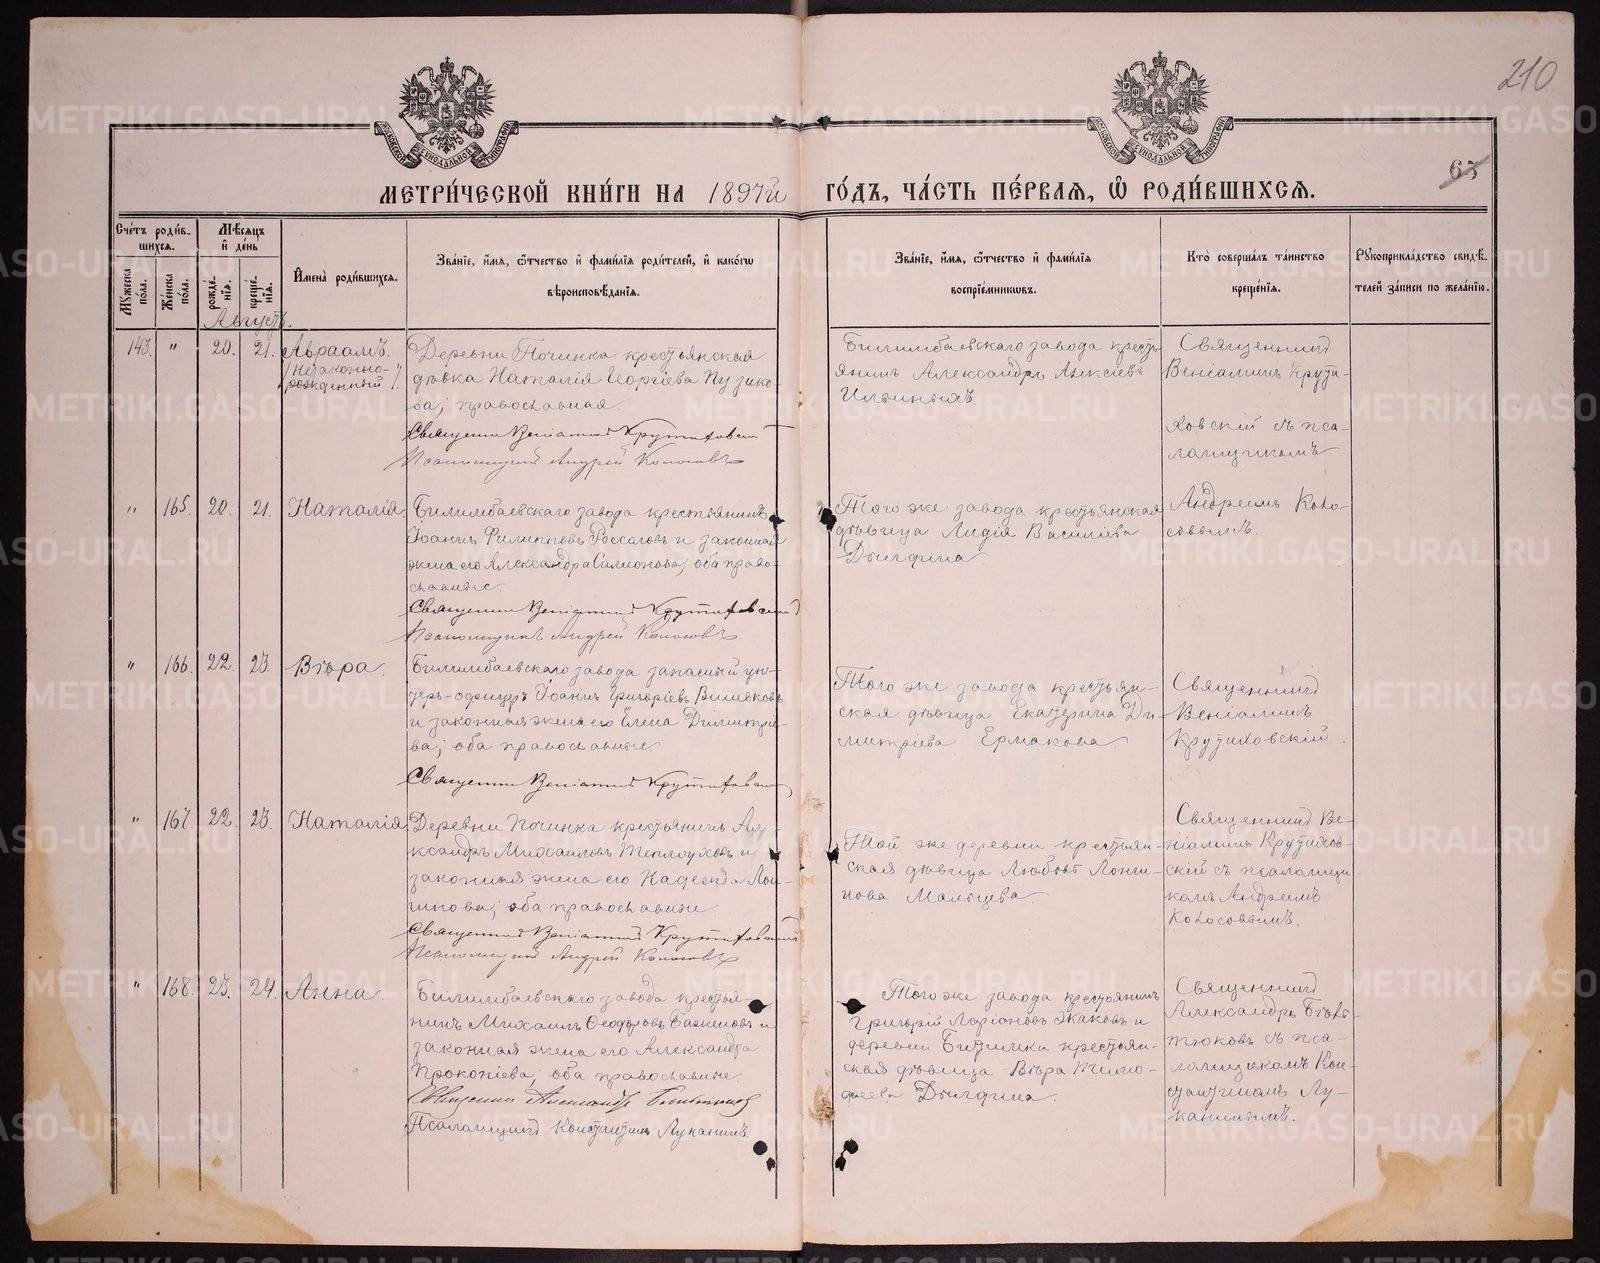 210
65
МЕТРИ́ЧЕСКОЙ КНИ́ГИ НА 1897й ГО́ДЪ, ЧА́СТЬ ПЕ́РВАЯ, Ѽ РОДИ́ВШИХСЯ.
Сче́тъ роди́в-
шихся.
Мѣ́сяцъ
и́ де́нь
И́мена̀ роди́вшихся.
Зва́нїе, и́мя, ѻ́тчество и́ фами́лїя роди́телей, и́ како́гѡ
вѣроисповѣ́данїя.
Зва́нїе, и́мя, ѻ́тчество и́ фами́лїя
воспрїе́мникѡвъ.
Кто̀ соверша́лъ та́инство
креще́нїя.
Рꙋкоприкла́дство свидѣ́-
телей за́писи по жела́нїю.
Мꙋ́жеска
по́ла.
Же́нска
по́ла.
рожде́-
нїя.
креще́-
нїя.
Августъ.
143. " 20. 21. Авраамъ.
/незаконно-
рожденный/.
Деревни Починка крестьянская
дѣвка Наталія Георгіева Пузико-
ва; православная.
Священник Веніамин Крутиховский
Псаломщикъ Андрей Колосовъ
Билимбаевскаго завода кресть-
янинъ Александръ Алексѣевъ
Ильиныхъ
Священникъ
Веніаминъ Крути-
ховскій съ пса-
ломщикомъ
Андреемъ Коло-
совымъ.
" 165. 20. 21. Наталія.
Билимбаевскаго завода крестьянинъ
Іоаннъ Филипповъ Россаловъ и законная
жена его Александра Симеонова; оба право-
славные.
Священник Веніаминъ Крутиховский
Псаломщикъ Андрей Колосовъ
Того же завода крестьянская
дѣвица Лидія Васильева
Дылдина
" 166. 22. 23 Вѣра.
Билимбаевскаго завода запасный ун-
теръ-офицеръ Іоаннъ Григоріевъ
и законная жена его Елена Димитріе-
ва; оба православные
Священник Веніаминъ Крутиховский
Того же завода крестьян-
ская дѣвица Екатерина Ди-
митріева Ермакова.
Священникъ
Веніаминъ
Крутиховскій.
" 167. 22. 23. Наталія.
Деревни Починка крестьянинъ Але-
ксандръ Михаиловъ Теплоуховъ и
законная жена его Надежда Лон-
гинова; оба православные.
Священникъ Веніаминъ Крутиховский
Псаломщикъ Андрей Колосовъ
Той же деревни крестьян-
ская дѣвица Любовь Лонги-
нова Мальцева.
Священникъ Ве-
ніаминъ Крутихов-
скій съ псаломщи-
комъ Андреемъ
Колосовымъ.
" 168. 23. 24. Анна.
Билимбаевскаго завода крестья-
нинъ Михаилъ Ѳеодоровъ Баженовъ и
законная жена его Александра
Прокопіева; оба православные.
Священник Александръ
Псаломщикъ Константинъ Луканинъ.
Того же завода крестьянинъ
Григорій Ларіоновъ Жаковъ и
деревни Битимки крестьян-
ская дѣвица Вѣра Тимо-
феева Дылдина.
Священникъ
Александръ
съ пса-
ломщикомъ Кон-
стантиномъ Лу-
канинымъ.